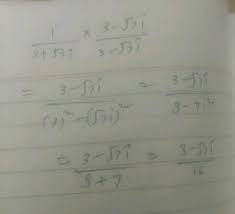 1/(3+√7i) × (3-√7i)/(3-√7i)
= (3-√7i)/((3)²-(√7i)²) = (3-√7i)/(9-7i²)
= (3-√7i)/(9+7) = (3-√7i)/16